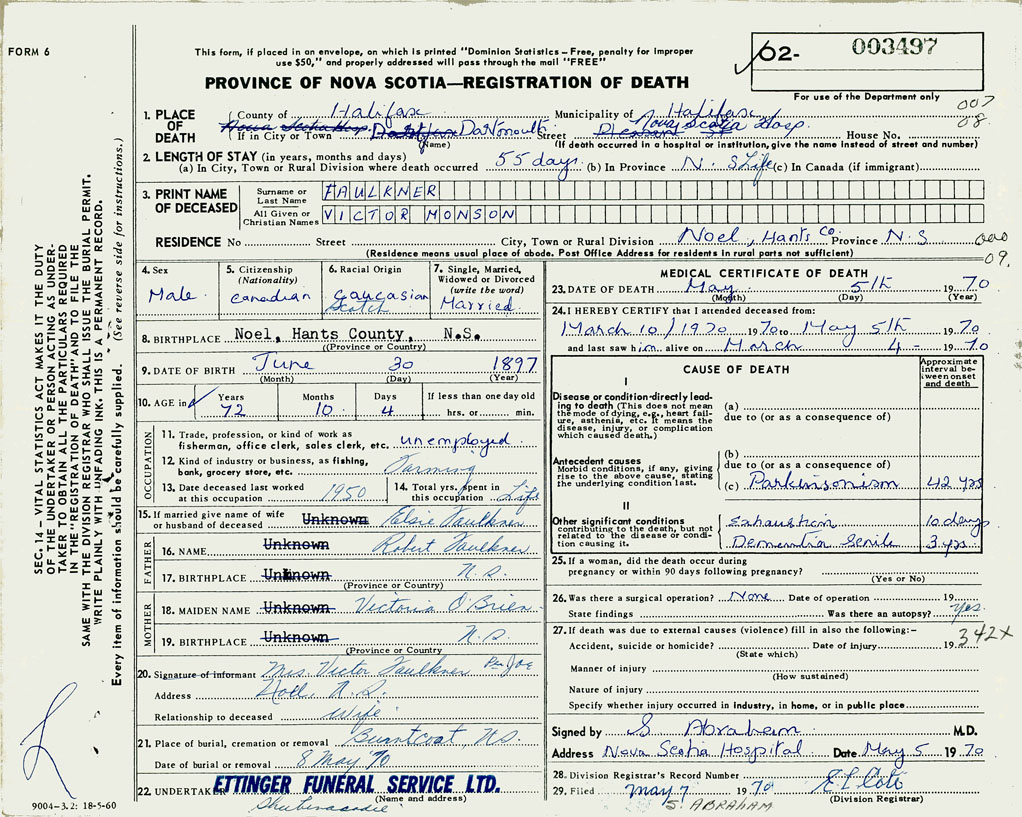 FORM 6
This form, if placed in an envelope, on which is printed "Dominion Statistics – Free, penalty for improper
use $50," and properly addressed will pass through the mail "FREE"
PROVINCE OF NOVA SCOTIA—REGISTRATION OF DEATH
02- 003497
For use of the Department only
007
08.
1. PLACE OF DEATH
County of Halifax Municipality of Halifax
Nova Scotia Hosp.
If in City or Town Dartmouth Street Nova Scotia Hosp. House No.
(Name) (If death occurred in a hospital or institution, give the name instead of street and number)
2. LENGTH OF STAY (in years, months and days)
(a) In City, Town or Rural Division where death occurred 55 days (b) In Province N. S Life (c) In Canada (if immigrant)
3. PRINT NAME OF DECEASED
Surname or Last Name FAULKNER
All Given or Christian Names VICTOR MONSON
RESIDENCE No Street City, Town or Rural Division Noel, Hants Co. Province N. S
(Residence means usual place of abode. Post Office Address for residents in rural parts not sufficient)
09.
4. Sex Male
5. Citizenship (Nationality) Canadian
6. Racial Origin Caucasian Scotch
7. Single, Married, Widowed or Divorced (write the word) Married
8. BIRTHPLACE Noel, Hants County, N.S.
(Province or County)
9. DATE OF BIRTH June 30 1897
(Month) (Day) (Year)
10. AGE in Years 72 Months 10 Days 4 If less than one day old hrs. or min.
OCCUPATION
11. Trade, profession, or kind of work as
fisherman, office clerk, sales clerk, etc. unemployed.
12. Kind of industry or business, as fishing,
bank, grocery store, etc. Farming
13. Date deceased last worked
at this occupation 1950
14. Total yrs. spent in
this occupation Life
15. If married give name of wife
or husband of deceased Unknown Elsie Faulkner
FATHER
16. NAME Unknown Robert Faulkner
17. BIRTHPLACE Unknown N. S.
(Province or Country)
MOTHER
18. MAIDEN NAME Unknown Victoria O'Brien
19. BIRTHPLACE Unknown N. S.
(Province or Country)
20. Signature of informant Mrs. Victor Faulkner Per Joe
Address Noel, N. S.
Relationship to deceased Wife
21. Place of burial, cremation or removal Burntcoat, NS.
Date of burial or removal 8 May 70
22. UNDERTAKER ETTINGER FUNERAL SERVICE LTD.
(Name and address)
Shubenacadie
MEDICAL CERTIFICATE OF DEATH
23. DATE OF DEATH May 5th 1970
(Month) (Day) (Year)
24. I HEREBY CERTIFY that I attended deceased from:
March 10/1970 1970 to May 5th 1970
and last saw him alive on March 4 - 1970
CAUSE OF DEATH
Approximate interval between onset and death
I
Disease or condition-directly lead-
ing to death (This does not mean
the mode of dying, e.g., heart failure,
asthenia, etc. It means the
disease, injury, or complication
which caused death.)
(a)
due to (or as a consequence of)
Antecedent causes
Morbid conditions, if any, giving
rise to the above cause, stating
the underlying condition last.
(b)
due to (or as a consequence of)
(c) Parkinsonism 42 yrs
II
Other significant conditions
contributing to the death, but not
related to the disease or condi-
tion causing it.
Exhaustion 10 days
Dementia Senile 3 yrs.
25. If a woman, did the death occur during
pregnancy or within 90 days following pregnancy?
(Yes or No)
26. Was there a surgical operation? None Date of operation 19
State findings Was there an autopsy? Yes.
27. If death was due to external causes (violence) fill in also the following:–
342X
Accident, suicide or homicide? Date of injury 19
(State which)
Manner of injury
(How sustained)
Nature of injury
Specify whether injury occurred in Industry, in home, or in public place
Signed by S Abraham M.D.
Address Nova Scotia Hospital Date May 5 1970
28. Division Registrar's Record Number
29. Filed May 7 1970
(Division Registrar)
S. ABRAHAM
SEC. 14 – VITAL STATISTICS ACT MAKES IT THE DUTY
OF THE UNDERTAKER OR PERSON ACTING AS UNDER-
TAKER TO OBTAIN ALL THE PARTICULARS REQUIRED
IN THE "REGISTRATION OF DEATH" AND TO FILE THE
SAME WITH THE DIVISION REGISTRAR WHO SHALL ISSUE THE BURIAL PERMIT.
WRITE PLAINLY WITH UNFADING INK. THIS IS A PERMANENT RECORD.
Every item of information should be carefully supplied. (See reverse side for instructions.)
9004-3.2: 18-5-60